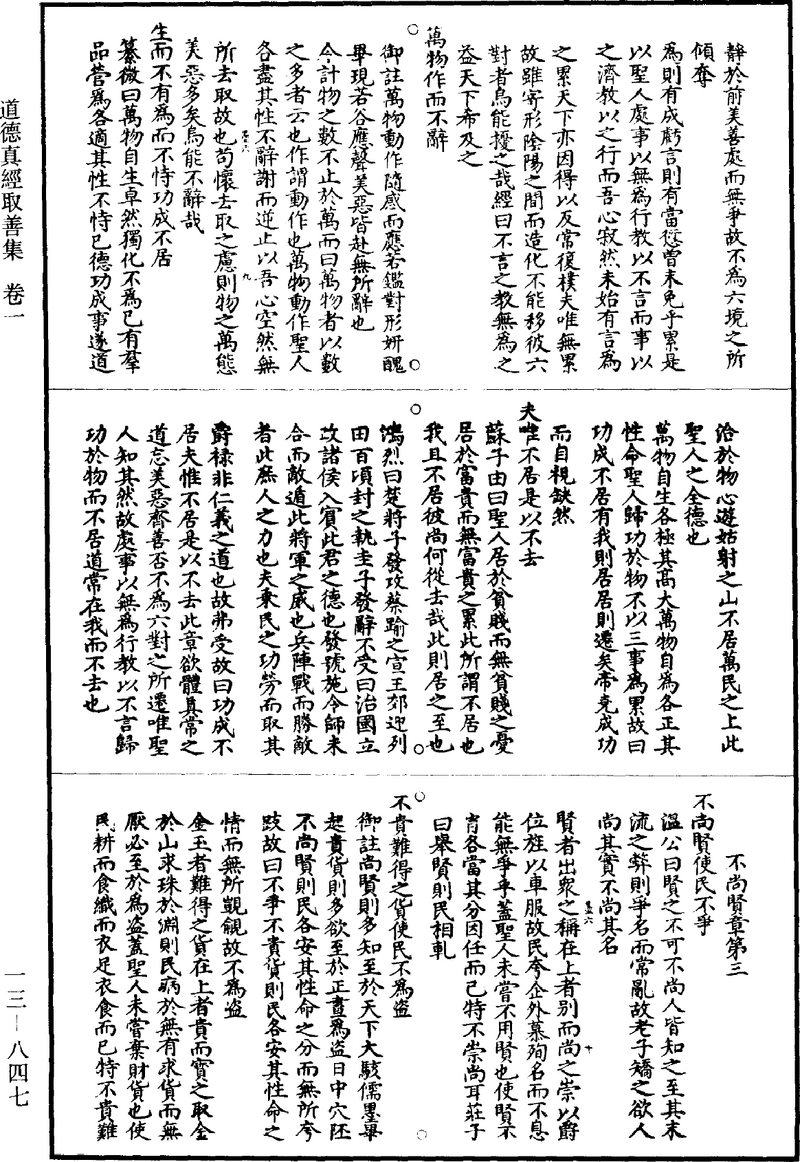 靜於前美善處而無爭故不為六境之所
傾奪
為則有成虧言則有當愆曾未免乎累是
以聖人處事以無為行教以不言而事以
之濟教以之行而吾心寂然未始有言為
之累天下亦因得以反常復樸夫唯無累
故雖寄形陰陽之間而造化不能移彼六
對者烏能擾之哉經曰不言之教無為之
益天下希及之
萬物作而不辭
御註萬物動作隨感而應若鑑對形妍醜
畢現若谷應聲美惡皆赴無所辭也
今計物之數不止於萬而曰萬物者以數
之多者云也作謂動作也萬物動作聖人
各盡其性不辭謝而逆止以吾心空然無
所去取故也苟懷去取之慮則物之萬態
美惡多矣烏能不辭哉
生而不有為而不恃功成不居
纂微曰萬物自生卓然獨化不為已有羣
品營為各適其性不恃已德功成事遂道
洽於物心遊姑射之山不居萬民之上此
聖人之全德也
萬物自生各極其高大萬物自為各正其
性命聖人歸功於物不以三事為累故曰
功成不居有我則居居則遷矣帝堯成功
而自視缺然
夫唯不居是以不去
蘇子由曰聖人居於貧賤而無貧賤之憂
居於富貴而無富貴之累此所謂不居也
我且不居彼尚何從去哉此則居之至也
鴻烈曰楚將子發攻蔡踰之宣王郊迎列
田百頃封之執圭子發辭不受曰治國立
政諸侯入賓此君之德也發號施令師未
合而敵遁此將軍之威也兵陣戰而勝敵
者此庶人之力也夫乘民之功勞而取其
爵祿非仁義之道也故弗受故曰功成不
居夫惟不居是以不去此章欲體真常之
道忘美惡齊善否不為六對之所遷唯聖
人知其然故處事以無為行教以不言歸
功於物而不居道常在我而不去也
不尚賢章第三
不尚賢使民不爭
溫公曰賢之不可不尚人皆知之至其末
流之弊則爭名而常亂故老子矯之欲人
尚其實不尚其名
賢者出眾之稱在上者別而尚之崇以爵
位旌以車服故民夸企外慕殉名而不息
能無爭乎蓋聖人未嘗不用賢也使賢不
肖各當其分因任而已特不崇尚耳莊子
曰舉賢則民相軋
不貴難得之貨使民不為盜
御註尚賢則多知至於天下大駭儒墨畢
起貴貨則多欲至於正晝為盜日中穴阫
不尚賢則民各安其性命之分而無所夸
跂故曰不爭不貴貨則民各安其性命之
情而無所覬覦故不為盜
金玉者難得之貨在上者貴而寶之取金
於山求珠於淵則民病於無有求貨而無
厭必至於為盜蓋聖人未嘗棄財貨也使
民耕而食織而衣足衣食而已特不貴難
道德真經取善集 卷一
一三—八四七